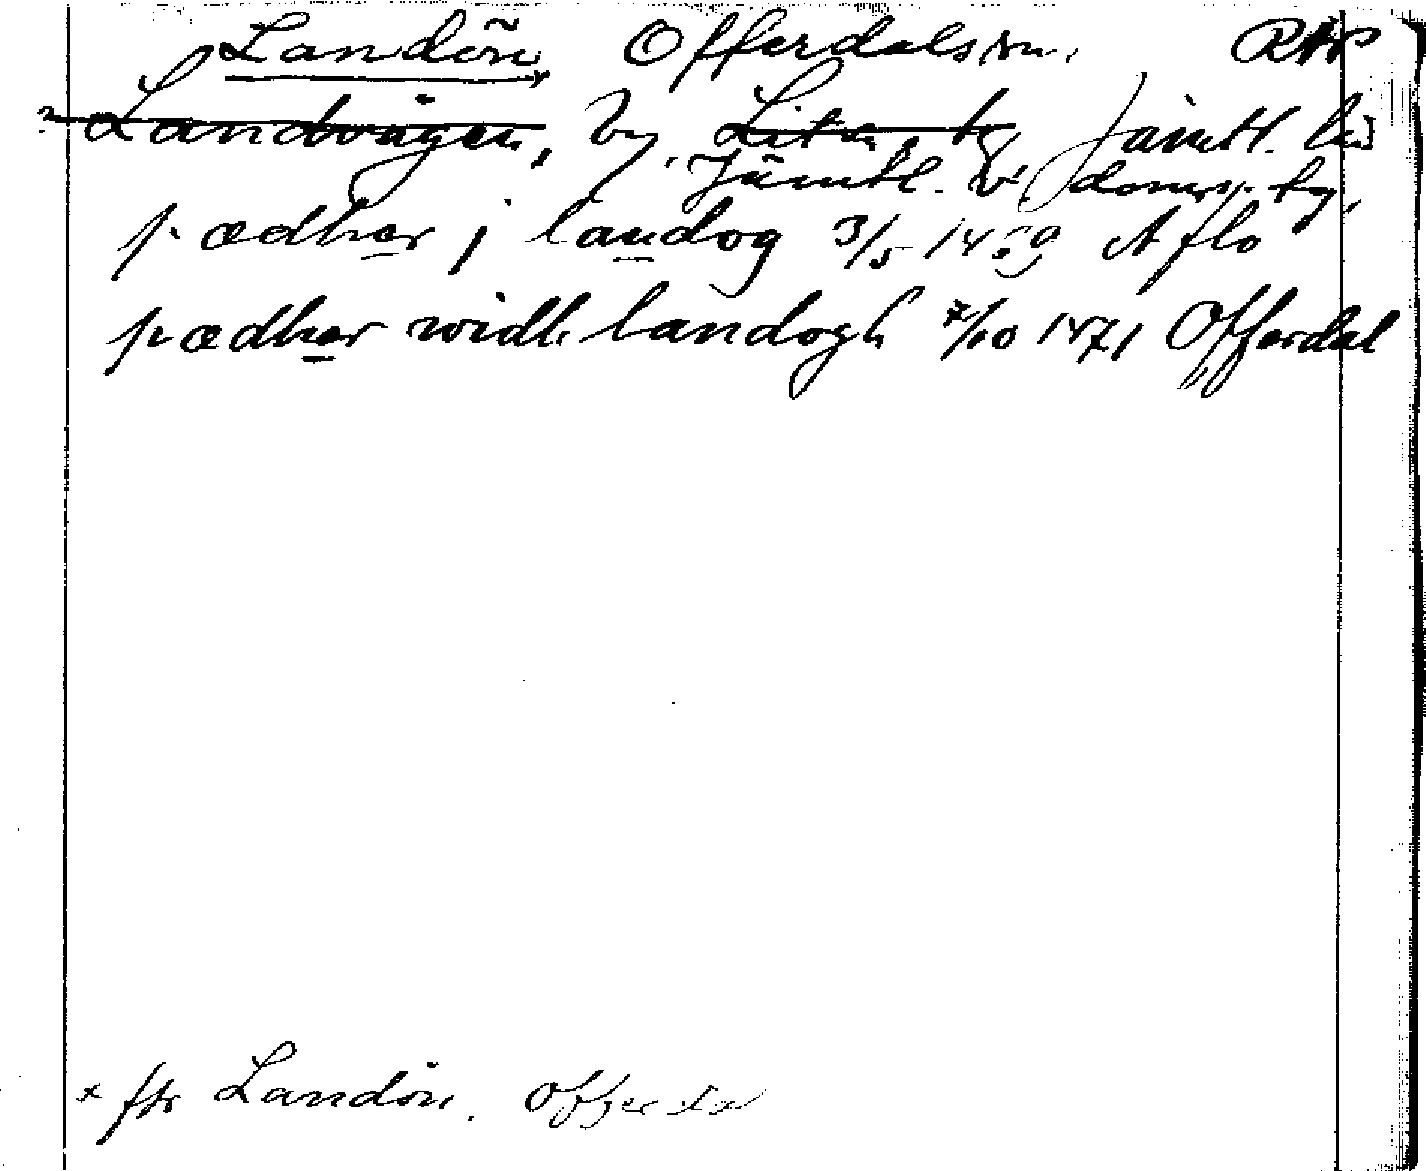 Landön, Offerdals sn. RAP
? Landvågen, by, Lits tg Jämtl. län
Jämtl. v. doms. tg.
pædher j landog 3/5 1459 Aflo
pædher widh landogh 7/10 1471 Offerdal
x för Landön. Offerda